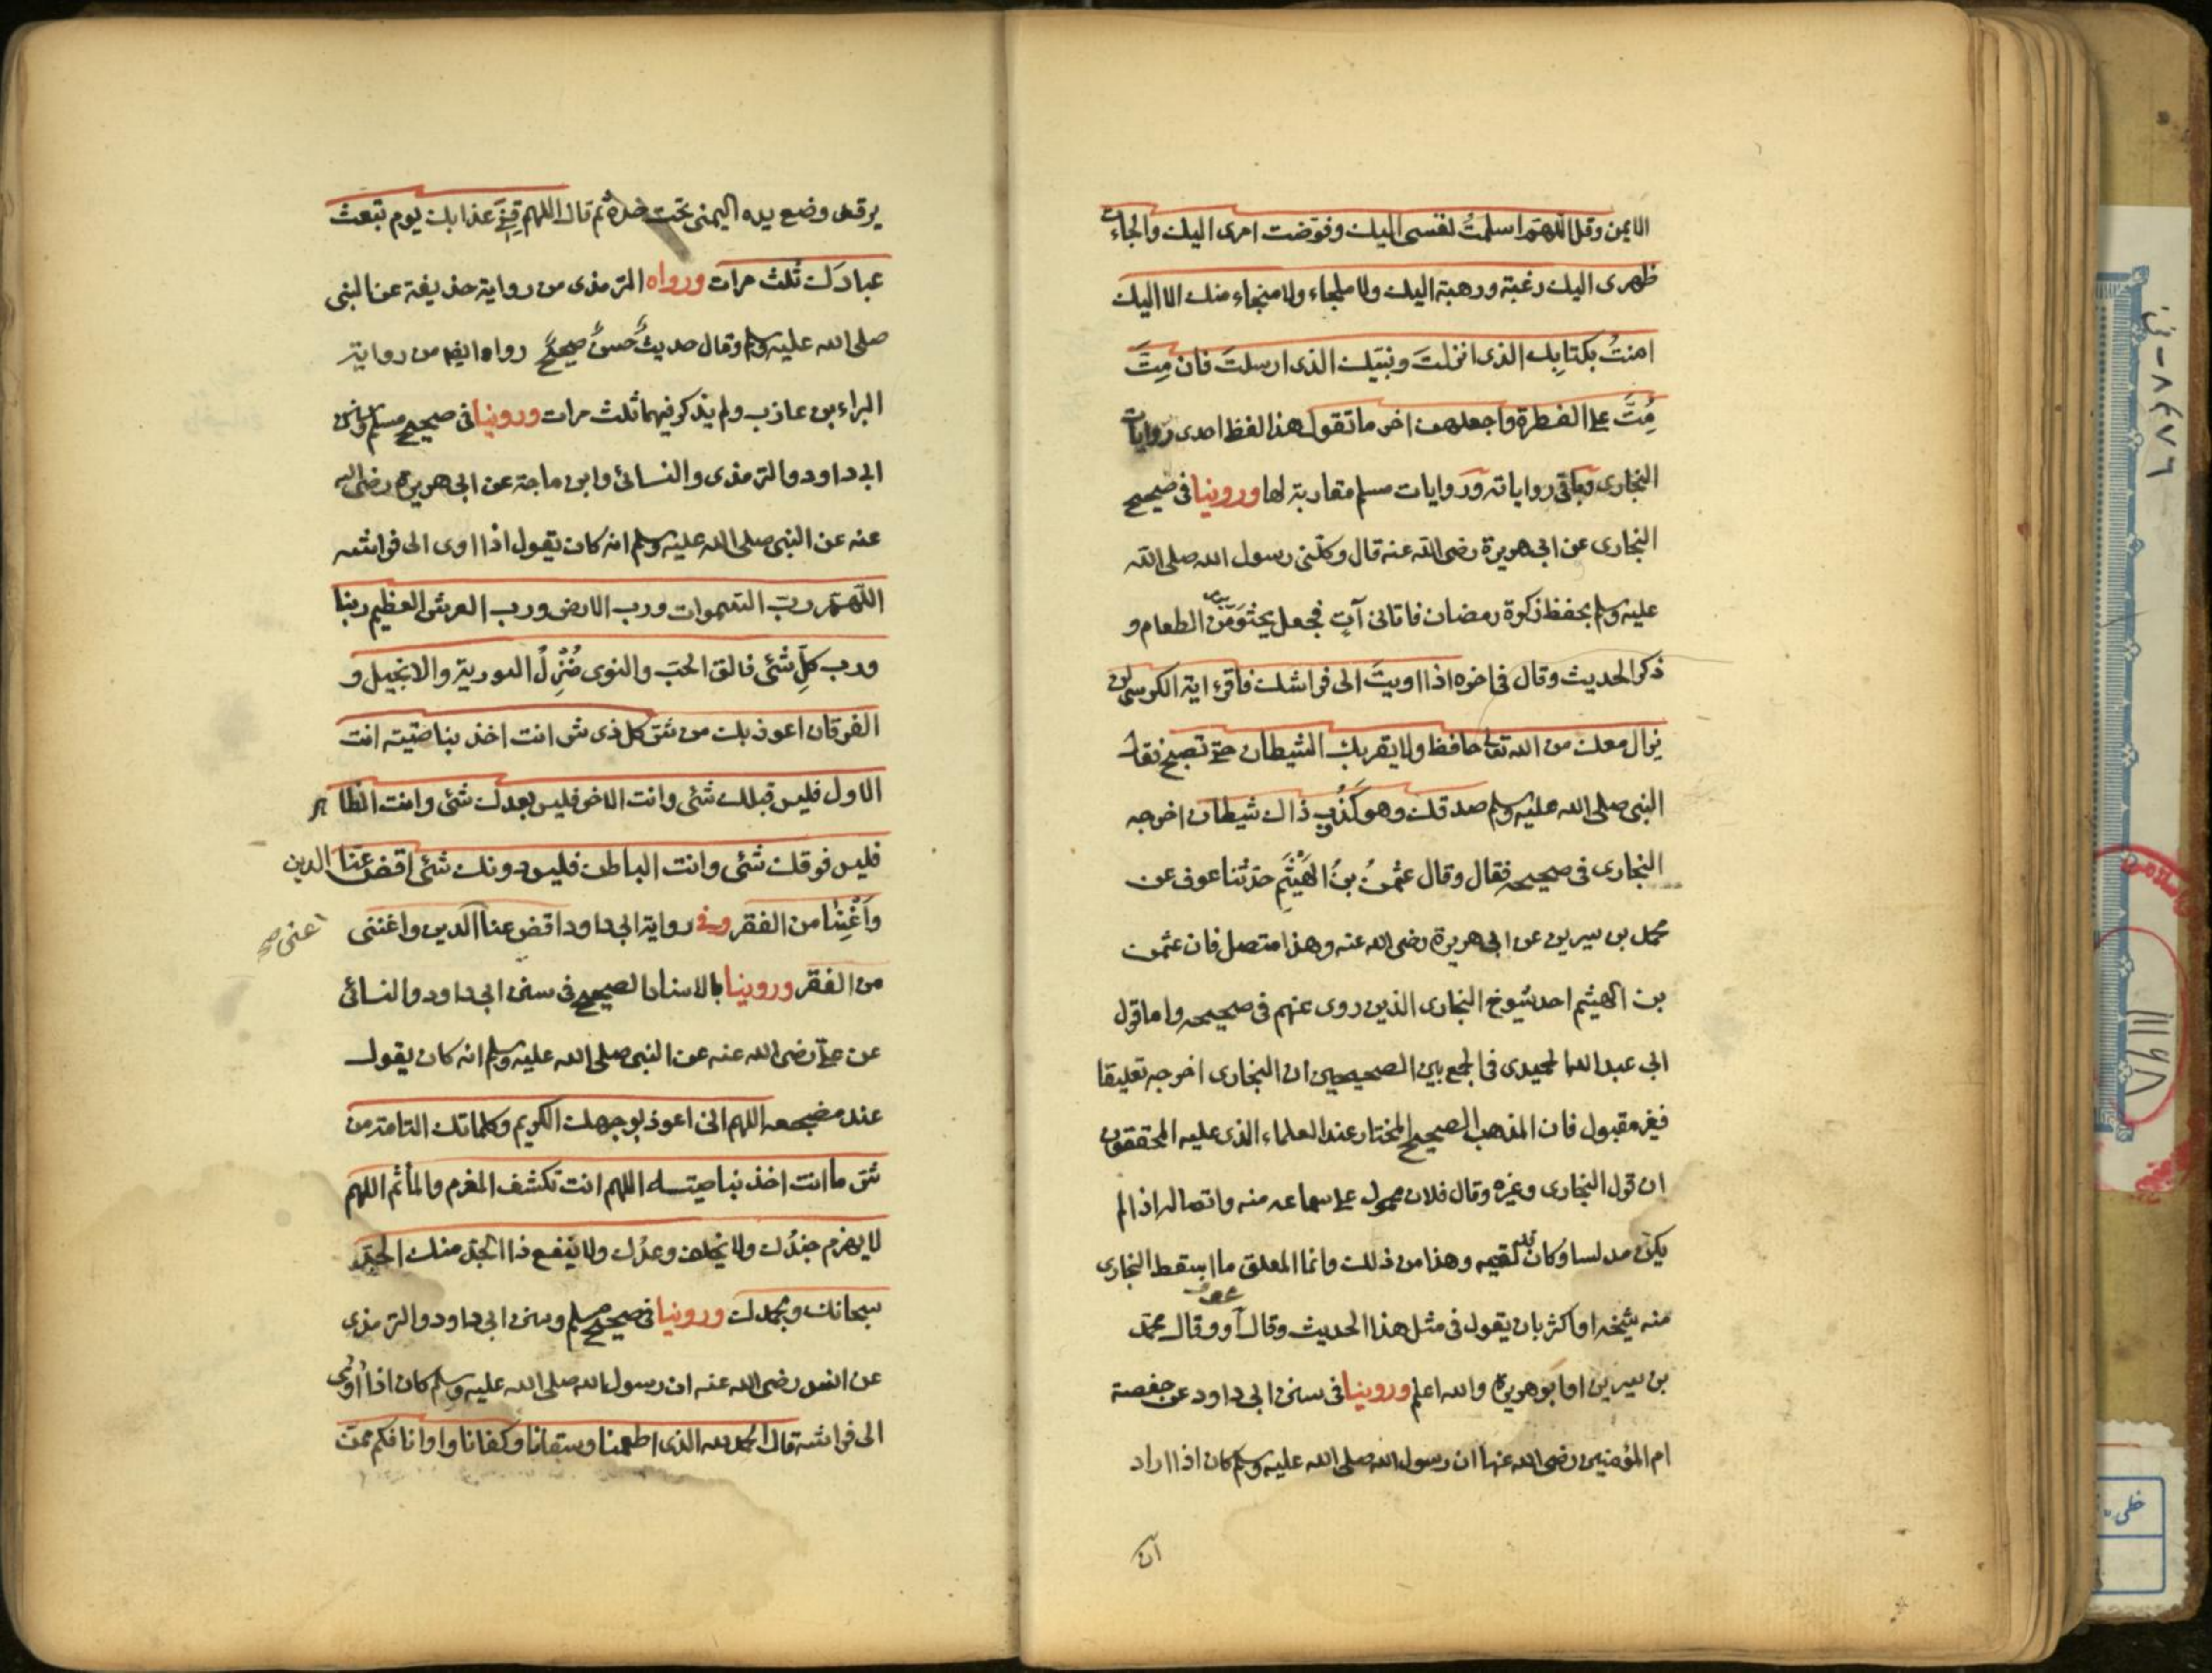 الايمن وقل اللهم اسلمتُ نفسى اليك وفوّضت امرى اليك والجاءت
ظهرى اليك رغبة ورهبة اليك ولا ملجاء ولا منجاء منك الا اليك
امنتُ بكتابِك الذى انزلتَ ونبيّك الذى ارسلتَ فان مِتَّ
مُتَّ على الفطرة واجعلهن اخر ما تقول هذا لفظ احدى روايات
البخارى وباقى رواياته وروايات مسلم مقاربة لها وروينا فى صحيح
البخارى عن ابى هريرة رضى الله عنه قال وكّلنى رسول الله صلى الله
عليه وسلم بحفظ زكوة رمضان فاتانى آتٍ فجعل يحثو من الطعام و
ذكر الحديث وقال فى اخره اذا اويتَ الى فراشك فاقرء اية الكرسى لن
يزال معك من الله تعالى حافظ ولا يقربك الشيطان حتى تصبح فقال
النبى صلى الله عليه وسلم صدقك وهو كذوب ذاك شيطان اخرجه
البخارى فى صحيحه فقال وقال عثمنُ بنُ الهَيْثَمِ حدّثنا عوف عن
محمد بن سيرين عن ابى هريرة رضى الله عنه وهذا متصل فان عثمن
بن الهيثم احد شيوخ البخارى الذين روى عنهم فى صحيحه واما قول
ابى عبد الله الحميدى فى الجمع بين الصحيحين ان البخارى اخرجه تعليقا
فغير مقبول فان المذهب الصحيح المختار عند العلماء الذى عليه المحققون
ان قول البخارى وغيره وقال فلان محمول على سماعه منه واتصاله اذا لم
يكن مدلسا وكان قد لقيه وهذا من ذلك وانما المعلق ما اسقط البخارى
منه شيخه او اكثر بان يقول فى مثل هذا الحديث وقال عوف او وقال محمد
بن سيرين او ابو هريرة والله اعلم وروينا فى سنن ابى داود عن حفصة
ام المؤمنين رضى الله عنها ان رسول الله صلى الله عليه وسلم كان اذا اراد
ان
يرقد وضع يده اليمنى تحت خده ثم قال اللهم قِنِى عذابك يوم تبعث
عبادك ثلث مرات ورواه الترمذى من رواية حذيفة عن النبى
صلى الله عليه وسلم وقال حديثٌ حسنٌ صحيحٌ رواه ايضا من رواية
البراء بن عازب ولم يذكر فيهما ثلث مرات وروينا فى صحيح مسلم وسنن
ابى داود والترمذى والنسائى وابن ماجة عن ابى هريرة رضى الله
عنه عن النبى صلى الله عليه وسلم انه كان يقول اذا اوى الى فراشه
اللهم ربّ السموات ورب الارض ورب العرش العظيم ربنا
ورب كلِّ شئى فالق الحبّ والنوى مُنْزِلُ التورية والانجيل و
الفرقان اعوذ بك من شر كل ذى شر انت اخذ بناصيته انت
الاول فليس قبلك شئى وانت الاخر فليس بعدك شئى وانت الظاهر
فليس فوقك شئى وانت الباطن فليس دونك شئى اقض عنّا الدين
وَاَغْنِنا من الفقر وفى رواية ابى داود اقض عنا الدين واغننى
اغنى صح
من الفقر وروينا بالاسناد الصحيح فى سنن ابى داود والنسائى
عن على رضى الله عنه عن النبى صلى الله عليه وسلم انه كان يقول
عند مضجعه اللهم انى اعوذ بوجهك الكريم وكلماتك التامة من
شر ما انت اخذ بناصيته اللهم انت تكشف المغرم والمأثم اللهم
لا يهزم جندُك ولا يخلف وعدُك ولا ينفع ذا الجَدّ منك الجَدّ
سبحانك وبحمدك وروينا فى صحيح مسلم وسنن ابى داود والترمذى
عن انس رضى الله عنه ان رسول الله صلى الله عليه وسلم كان اذا اوى
الى فراشه قال الحمد لله الذى اطعمنا وسقانا وكفانا واوانا فكم ممن
٨٤٧٦ - ن
١١١٩٨
خطى